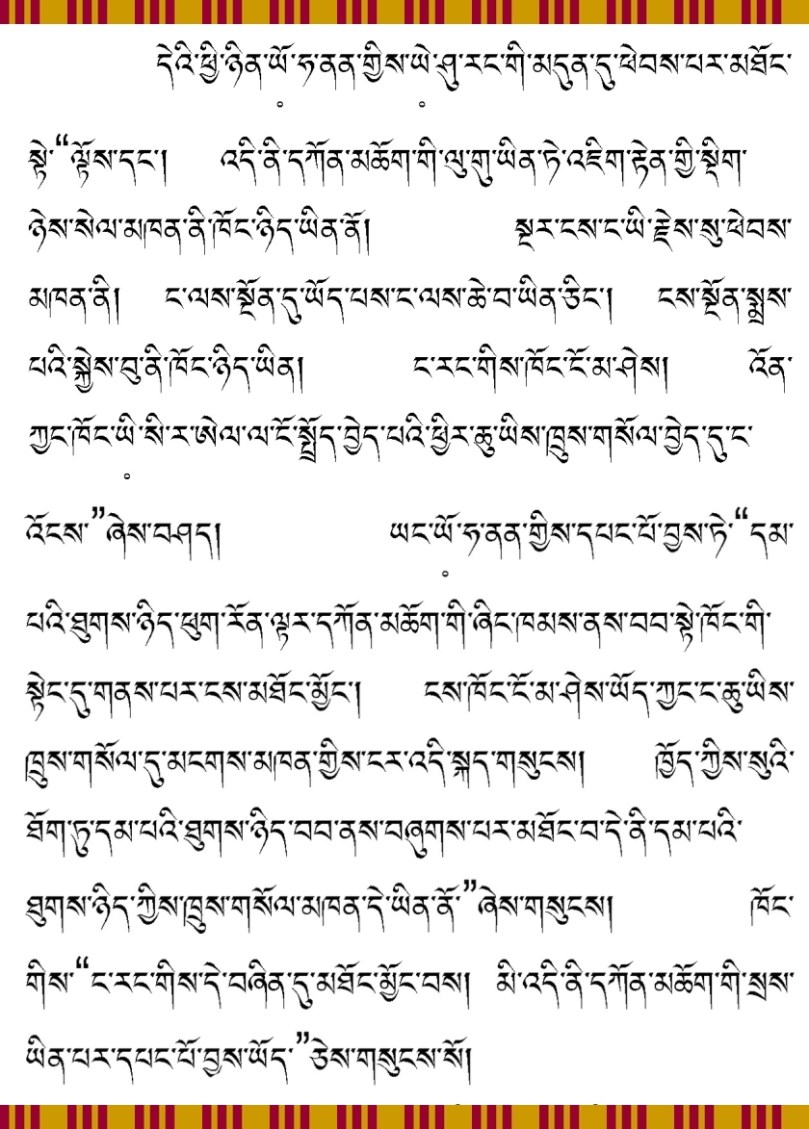 དེའི་ཕྱི་ཉིན་ཡོ༷་ཧ་ནན་གྱིས་ཡེ༷་ཤུ་རང་གི་མདུན་དུ་ཕེབས་པར་མཐོང་
སྟེ་“ལྟོས་དང༌། འདི་ནི་དཀོན་མཆོག་གི་ལུ་གུ་ཡིན་ཏེ་འཇིག་རྟེན་གྱི་སྡིག་
ཉེས་སེལ་མཁན་ནི་ཁོང་ཉིད་ཡིན་ནོ། སྔར་ངས་ང་ཡི་རྗེས་སུ་ཕེབས་
མཁན་ནི། ང་ལས་སྔོན་དུ་ཡོད་པས་ང་ལས་ཆེ་བ་ཡིན་ཅིང༌། ངས་སྔོན་སྨྲས་
པའི་སྐྱེས་བུ་ནི་ཁོང་ཉིད་ཡིན། ང་རང་གིས་ཁོང་ངོ་མ་ཤེས། འོན་
ཀྱང་ཁོང་ཡི༷་སི་ར་ཨེལ་ལ་ངོ་སྤྲོད་བྱེད་པའི་ཕྱིར་ཆུ་ཡིས་ཁྲུས་གསོལ་བྱེད་དུ་ང་
འོངས་”ཞེས་བཤད། ཡང་ཡོ༷་ཧ་ནན་གྱིས་དཔང་པོ་བྱས་ཏེ་“དམ་
པའི་ཐུགས་ཉིད་ཕུག་རོན་ལྟར་དཀོན་མཆོག་གི་ཞིང་ཁམས་ནས་བབ་སྟེ་ཁོང་གི་
སྟེང་དུ་གནས་པར་ངས་མཐོང་མྱོང༌། ངས་ཁོང་ངོ་མ་ཤེས་ཡོད་ཀྱང་ང་ཆུ་ཡིས་
ཁྲུས་གསོལ་དུ་མངགས་མཁན་གྱིས་ངར་འདི་སྐད་གསུངས། ཁྱོད་ཀྱིས་སུའི་
ཐོག་ཏུ་དམ་པའི་ཐུགས་ཉིད་བབ་ནས་བཞུགས་པར་མཐོང་བ་དེ་ནི་དམ་པའི་
ཐུགས་ཉིད་ཀྱིས་ཁྲུས་གསོལ་མཁན་དེ་ཡིན་ནོ་”ཞེས་གསུངས། ཁོང་
གིས་“ང་རང་གིས་དེ་བཞིན་དུ་མཐོང་མྱོང་བས། མི་འདི་ནི་དཀོན་མཆོག་གི་སྲས་
ཡིན་པར་དཔང་པོ་བྱས་ཡོད་”ཅེས་གསུངས་སོ།